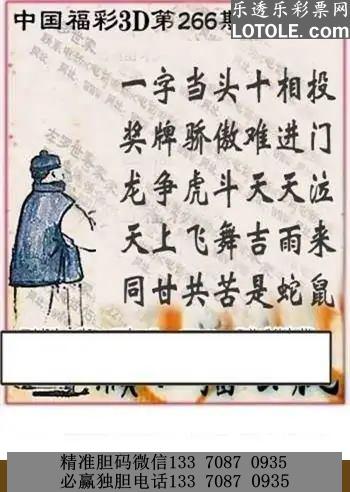 乐透乐彩票网
中国福彩3D第266期
LOTOLE.COM
一字当头十相投
奖牌骄傲难进门
龙争虎斗天天泣
天上飞舞吉雨来
同甘共苦是蛇鼠
精准胆码微信133 7087 0935
必赢独胆电话133 7087 0935